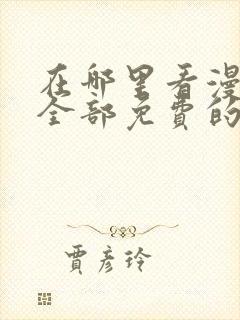 在哪里看漫
全部免費的
賈彦玲